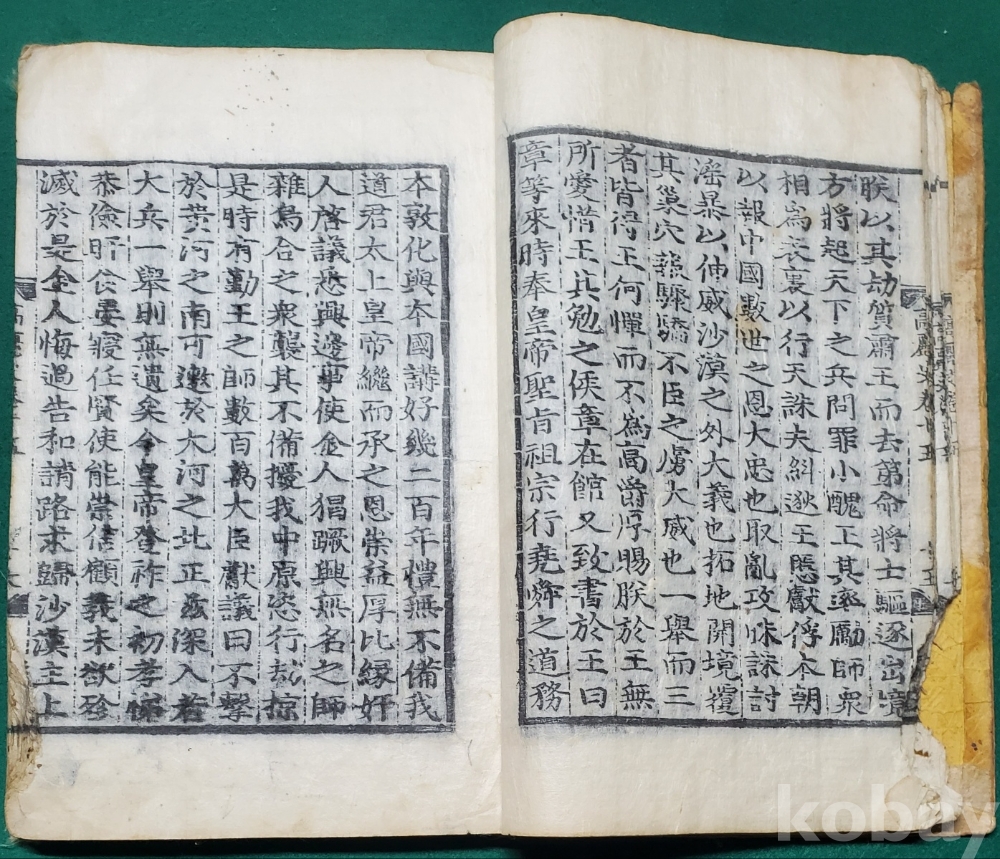 朕以其劫質肅王而去第命將士驅逐出
方將起天下之兵問罪小醜王其率勵師衆
相爲表裏以行天誅夫糾逖王慝獻俘本朝
以報中國數世之恩大忠也取亂攻昧誅討
淫暴以伸威沙漠之外大義也拓地開境覆
其巢穴 不臣之虜大威也一擧而三
者皆得王何憚而不爲高爵厚賜朕於王無
所愛惜王其勉之侯章在館又致書於王曰
章等來時奉皇帝聖旨祖宗行堯舜之道務
本敦化與本國講好幾二百年禮無不備我
道君太上皇帝繼而承之恩崇益厚比緣奸
人啓議悉興邊事使金人猖蹶興無名之師
雜烏合之衆襲其不備擾我中原恣行劫掠
是時有勤王之師數百萬大臣獻議曰不擊
於黃河之南可邀於大河之北正玆深入若
大兵一擧則無遺矣今皇帝登祚之初孝悌
恭儉旰食晏寢任賢使能崇信顧義未欲殄
滅於是金人悔過告和請路求歸沙漠主上
kobay